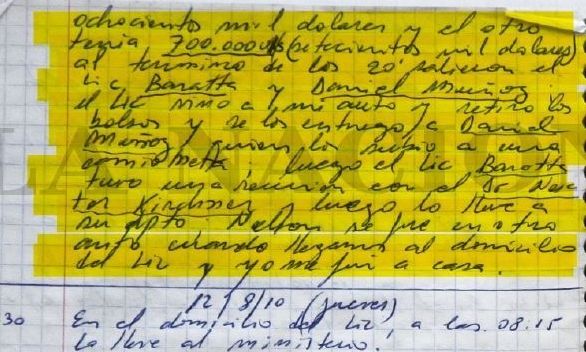 ochocientos mil dolares y el otro
tenia 700.000 u$s (setecientos mil dolares)
al termino de los 20' salieron el
Lic Baratta y Daniel Muñoz
el Lic vino a mi auto y retiro los
bolsos y se los entrego a Daniel
Muñoz, quien los subio a una
camioneta, luego el Lic Baratta
tuvo una reunion con el Dr Nes
tor Kirchner y luego lo lleve a
su dpto Nelson se fue en otro
auto cuando llegamos al domicilio
del Lic y yo me fui a casa.
12/8/10 (jueves)
30 En el domicilio del Lic, a las 08:15
lo lleve al ministerio.
LA NACION